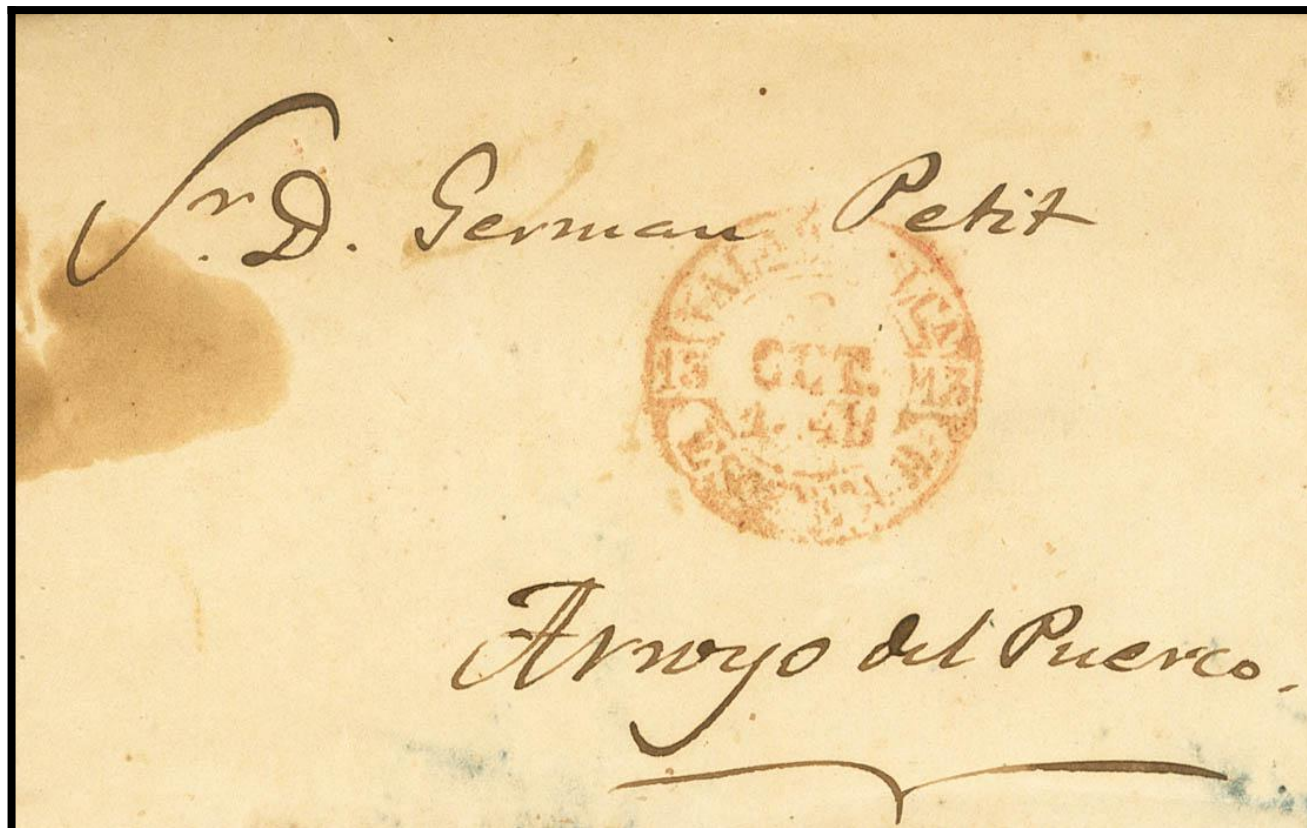 Sr. D. German Petit
13
OCT.
13
Arroyo del Puerco.